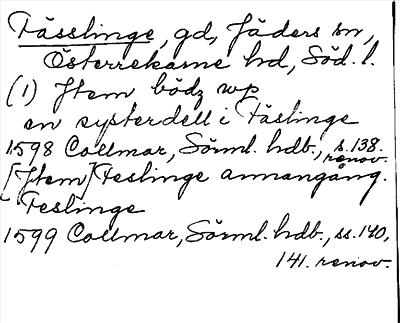 Tässlinge, gd, Jäders sn,
Österrekarne hd, Söd. l.
(1) Jtem bödz wp
en systerdell i Täslinge
1598 Collmar, Sörml. hdb., s. 138.
renov.
[Jtem] Teslinge annangång.
Teslinge
1599 Collmar, Sörml. hdb., ss. 140,
141. renov.